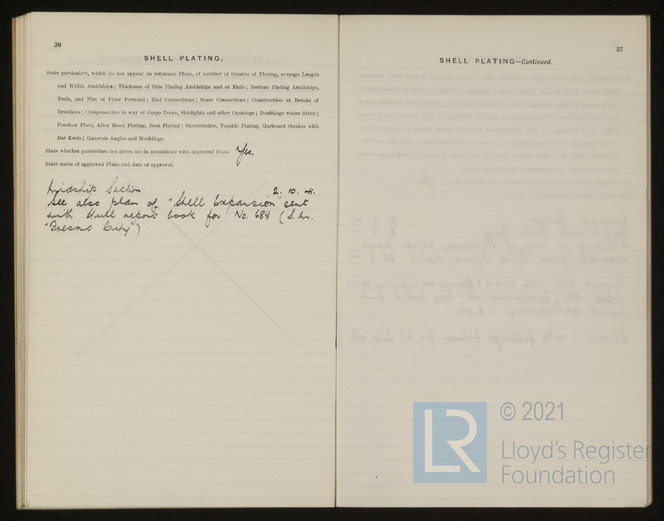 36
SHELL PLATING.
State particulars, which do not appear on reference Plans, of number of Strakes of Plating, average Length
and Width Amidships; Thickness of Side Plating Amidships and at Ends; Bottom Plating Amidships,
Ends, and Flat of Floor Forward; End Connections; Seam Connections; Construction at Breaks of
Erections; Compensation in way of Cargo Doors, Sidelights and other Openings; Doublings where fitted;
Forefoot Plate, After Hood Plating, Boss Plating; Sheerstrakes, Topside Plating, Garboard Strakes with
Bar Keels; Gunwale Angles and Mouldings.
State whether particulars not given are in accordance with approved Plans Yes.
State name of approved Plans and date of approval.
Midship Section 2. 10. 41.
See also plan of "Shell Expansion" sent
with Hull report book for No. 688 (S.
"Fresno City")
37
SHELL PLATING—Continued.
LR
© 2021
Lloyd's Register
Foundation